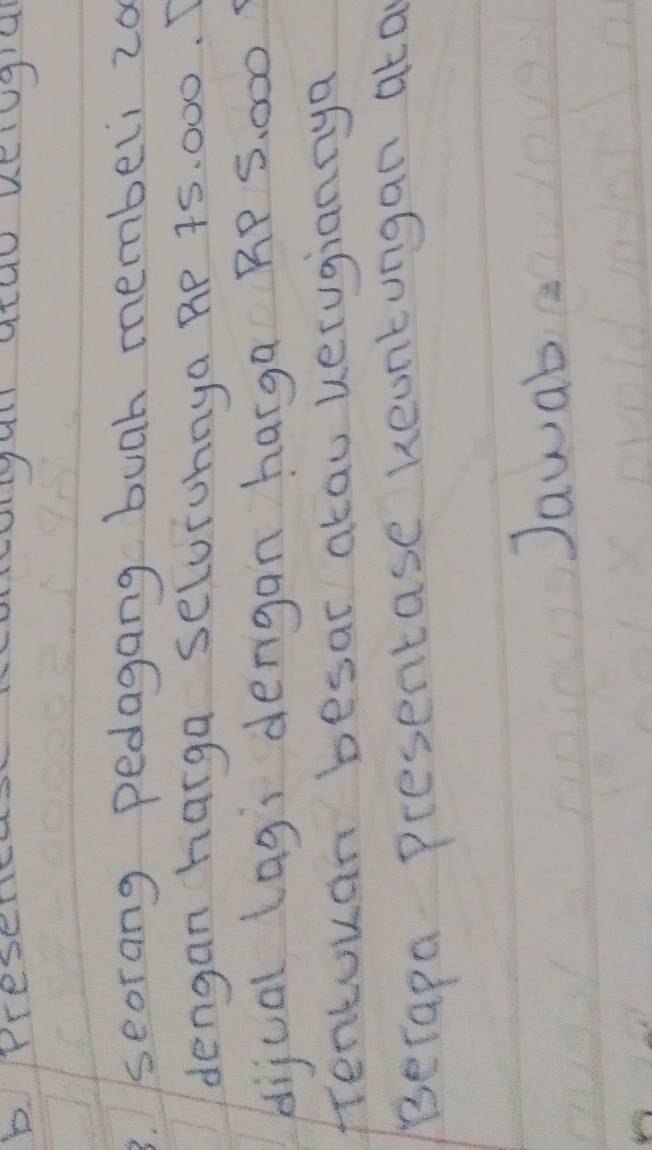 b. Presentase keuntungan atau kerugia
8. seorang pedagang buah membeli 200
dengan harga seluruhnya RP 75.000.
dijual lagi dengan harga RP 5.000
Tentukan besar atau kerugiannya
Berapa presentase keuntungan ata
Jawab =